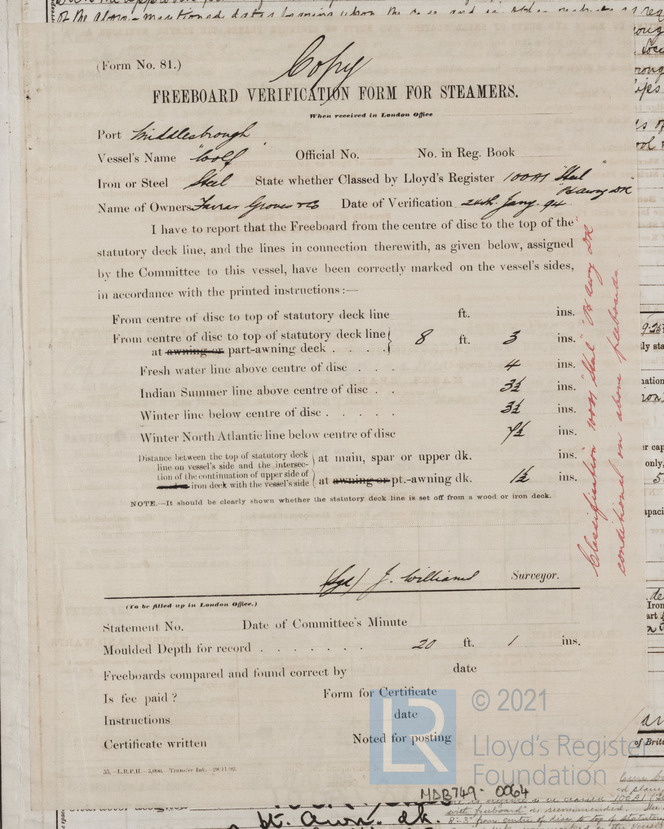 of the above-mentioned dates
(Form No. 81.)
Copy
FREEBOARD VERIFICATION FORM FOR STEAMERS.
When received in London Office
Port Middlesbrough
Vessel's Name "Wolf" Official No. No. in Reg. Book
Iron or Steel Steel State whether Classed by Lloyd's Register 100A1 "Steel"
Pt Awng Dk
Name of Owners Farrar Groves & Co Date of Verification 24th Jany. 94
I have to report that the Freeboard from the centre of disc to the top of the
statutory deck line, and the lines in connection therewith, as given below, assigned
by the Committee to this vessel, have been correctly marked on the vessel's sides,
in accordance with the printed instructions:—
From centre of disc to top of statutory deck line ft. ins.
From centre of disc to top of statutory deck line
at awning or part-awning deck . . . . 8 ft. 3 ins.
Fresh water line above centre of disc . . . 4 ins.
Indian Summer line above centre of disc . . 3½ ins.
Winter line below centre of disc . . . . . 3½ ins.
Winter North Atlantic line below centre of disc 7½ ins.
Distance between the top of statutory deck
line on vessel's side and the intersec-
tion of the continuation of upper side of
iron deck with the vessel's side
at main, spar or upper dk. ins.
at awning or pt.-awning dk. 1½ ins.
NOTE.—It should be clearly shown whether the statutory deck line is set off from a wood or iron deck.
Classification 100A1 "Steel" Pt Awng Dk
conditional on above freeboard
(Sgd) J. Williams Surveyor.
(To be filled up in London Office.)
Statement No. Date of Committee's Minute
Moulded Depth for record . . . . . . . 20 ft. 1 ins.
Freeboards compared and found correct by date
Is fee paid? Form for Certificate
Instructions date
Certificate written Noted for posting
LR
© 2021
Lloyd's Register
Foundation
MDB749-0064
pt. Awn. dk.
of Brit